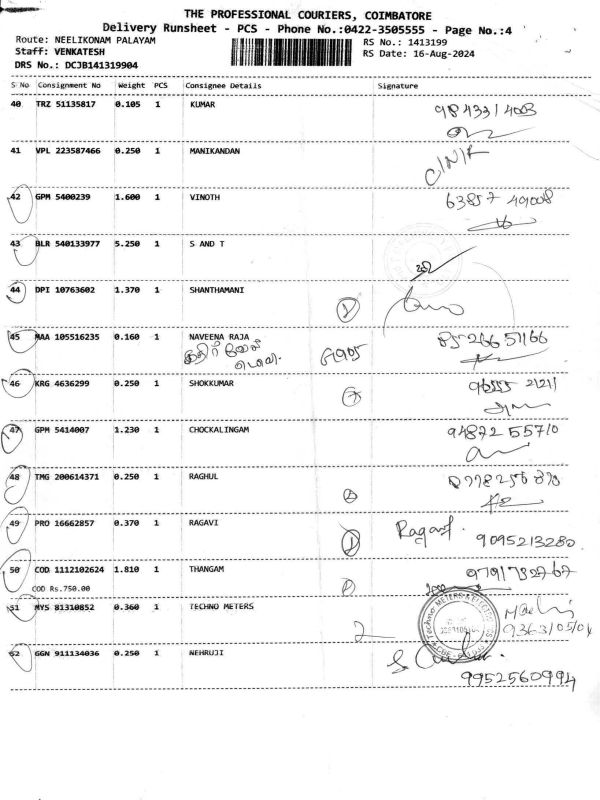 THE PROFESSIONAL COURIERS, COIMBATORE
Delivery Runsheet - PCS - Phone No.:0422-3505555 - Page No.:4
Route: NEELIKONAM PALAYAM
RS No.: 1413199
Staff: VENKATESH
RS Date: 16-Aug-2024
DRS No.: DCJB141319904
S No Consignment No Weight PCS Consignee Details Signature
40 TRZ 51135817 0.105 1 KUMAR
41 VPL 223587466 0.250 1 MANIKANDAN
C/N/R
42 GPM 5400239 1.600 1 VINOTH
63857 49008
43 BLR 540133977 5.250 1 S AND T
44 DPI 10763602 1.370 1 SHANTHAMANI
45 MAA 105516235 0.160 1 NAVEENA RAJA
85266 51166
46 KRG 4636299 0.250 1 SHOKKUMAR
47 GPM 5414007 1.230 1 CHOCKALINGAM
94872 55710
48 TMG 200614371 0.250 1 RAGHUL
49 PRO 16662857 0.370 1 RAGAVI
Ragavi
9095213280
50 COD 1112102624 1.810 1 THANGAM
COD Rs.750.00
51 MYS 81310852 0.360 1 TECHNO METERS
2
52 GGN 911134036 0.250 1 NEHRUJI
9952560994